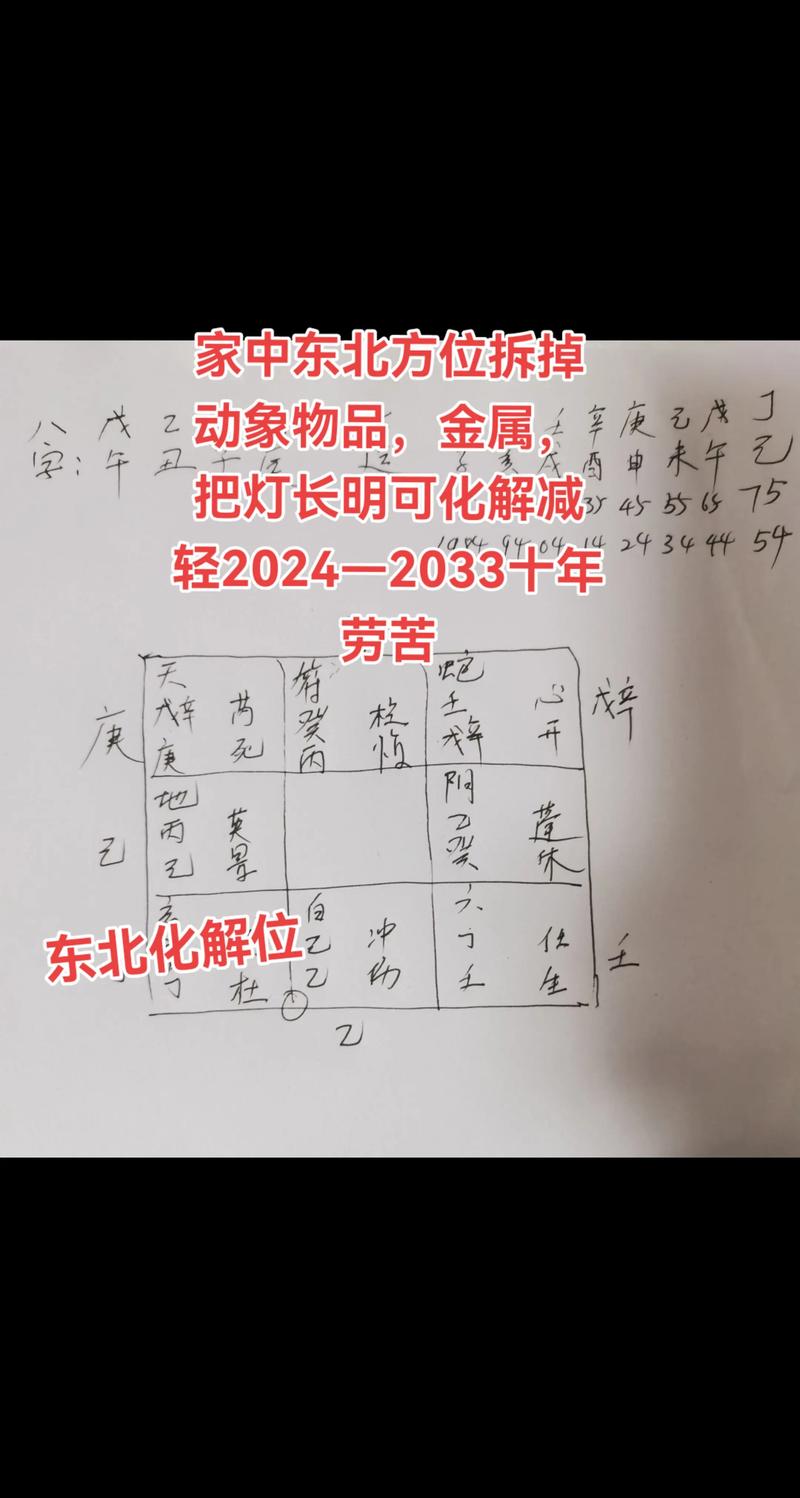 家中东北方位拆掉
八 戊 乙 壬 辛 庚 己 戊 丁
动象物品，金属，
字：午 丑 运 亥 戌 酉 申 未 午 巳
把灯长明可化解减
35 45 55 65 75
轻2024—2033十年
94 04 14 24 34 44 54
劳苦
天 符 蛇
庚 戊辛 芮 癸 柱 壬 心 戊辛
庚 死 丙 惊 戊辛 开
地 阴
己 丙 英 乙 蓬
己 景 癸 休
东北化解位
白 六
己 冲 丁 任 壬
丁 杜 乙 伤 壬 生
乙